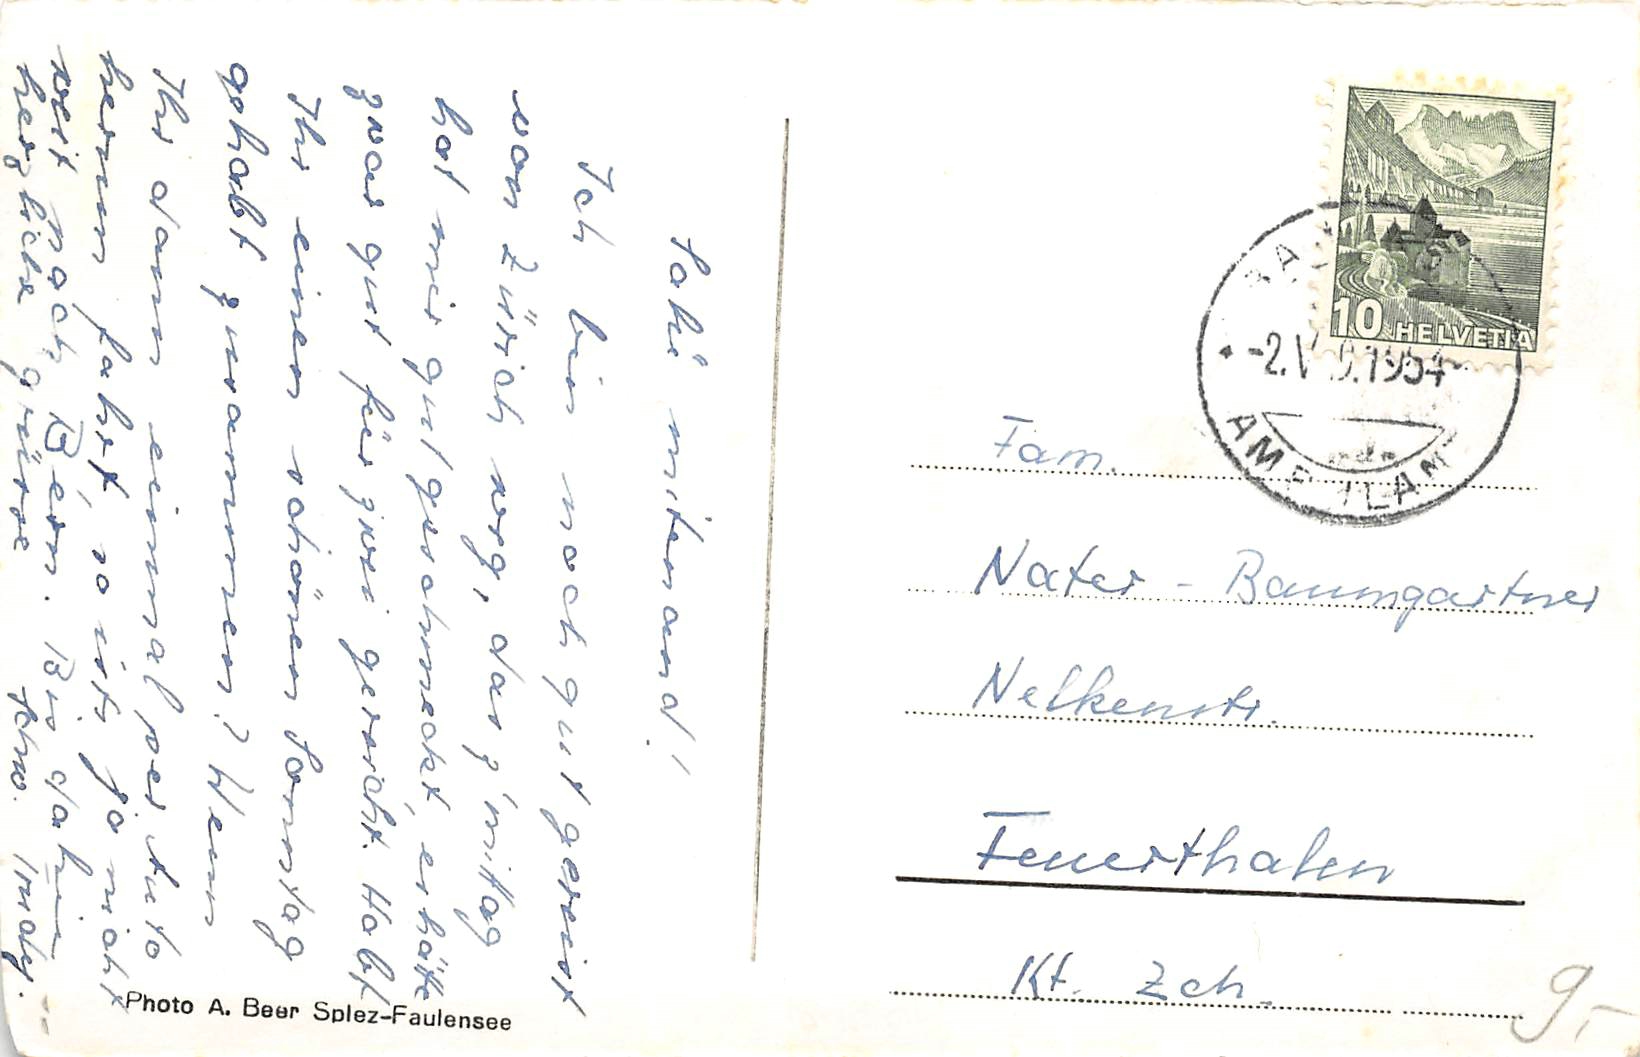 Sali mitenand!
Ich bin noch gut gereist
von Zürich weg, das z'mittag
hat mir gut geschmeckt, er hätte
zwar gut für zwei gereicht. Habt
Ihr einen schönen Sonntag
gehabt zusammen? Wenn
Ihr dann einmal per Auto
herum fahrt, so ists ja nicht
weit nach Bern. Bis dahin
herzliche grüsse
Schw. Trudy.
Photo A. Beer Spiez-Faulensee
10 HELVETIA
-2.V 1954
Fam.
Nater - Baumgartner
Nelkenstr.
Feuerthalen
Kt. Zch.
9.-